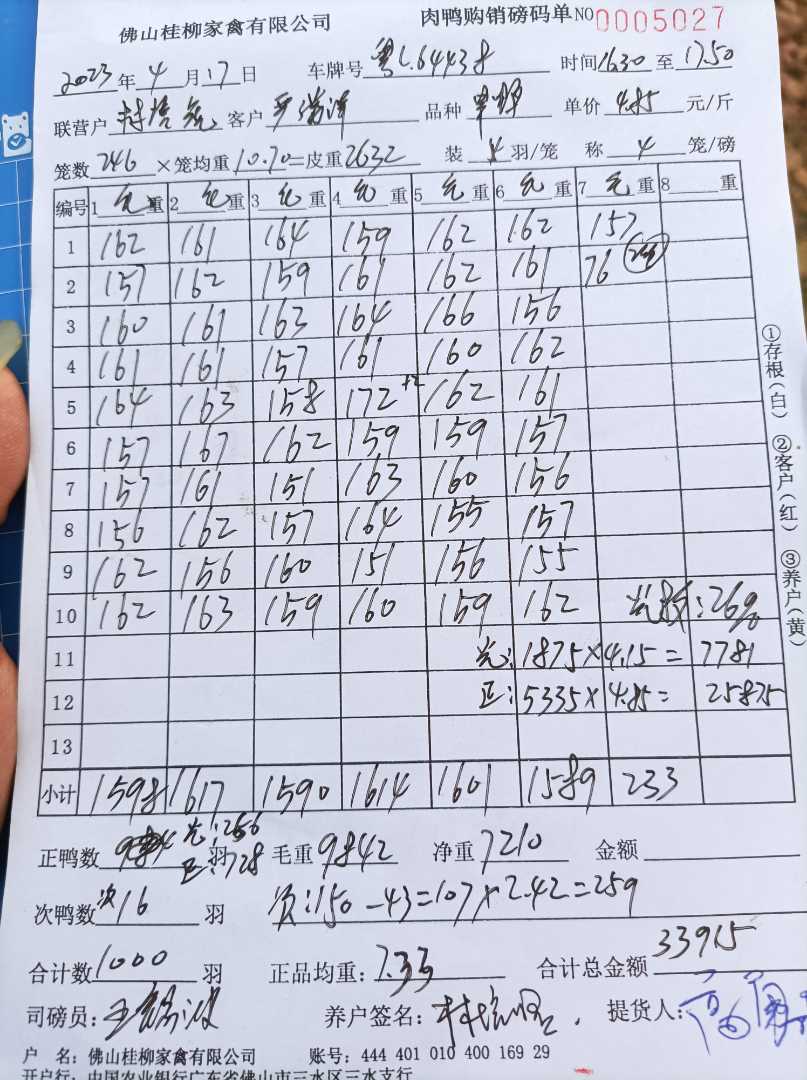 佛山桂柳家禽有限公司 肉鸭购销磅码单 NO 0005027
2023 年 4 月 17 日 车牌号 粤L.64438 时间 16.30 至 17.50
联营户 客户 品种 单价 4.85 元/斤
笼数 246 ×笼均重 10.70 =皮重 2632 装 4 羽/笼 称 4 笼/磅
编号 1 重 2 重 3 重 4 重 5 重 6 重 7 重 8 重
1 162 161 164 159 162 162 157
2 157 162 159 161 162 161 76
3 160 161 163 164 166 156
4 161 161 157 161 160 162
5 164 163 158 172 +2 162 161
6 157 167 162 159 159 157
7 157 161 151 163 160 156
8 156 162 157 164 155 157
9 162 156 160 151 156 155
10 162 163 159 160 159 162 : 26%
11 : 1875×4.15= 7781
12 正: 5335×4.85= 25875
13
小计 1598 1617 1590 1614 1601 1589 233
正鸭数 : 256 正: 728 羽 毛重 9842 净重 7210 金额
次鸭数 次16 羽 :150-43=107×2.42=259
合计数 1000 羽 正品均重: 7.33 合计总金额 33915
司磅员: 养户签名: 提货人:
户 名: 佛山桂柳家禽有限公司 账号: 444 401 010 400 169 29
开户行: 中国农业银行广东省佛山市三水区三水支行
①存根(白) ②客户(红) ③养户(黄)